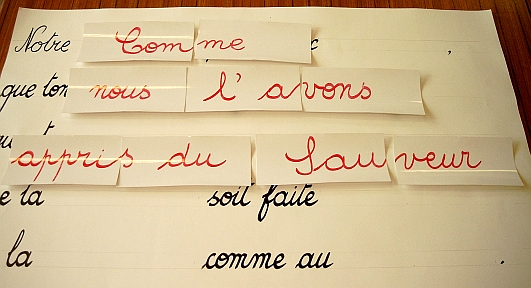 Notre Comme
que ton nous l'avons
appris du Sauveur
e la soit faite
la comme au .